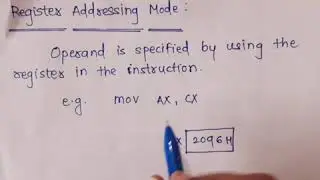 Register Addressing Mode :
Operand is specified by using the
register in the instruction.
e.g. MOV AX, CX
X 2096H